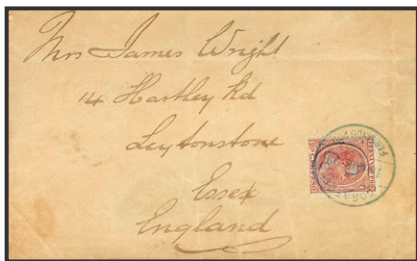 Mrs James Wright
14 Hartley Rd
Leytonstone
Essex
England
FERNANDO POO